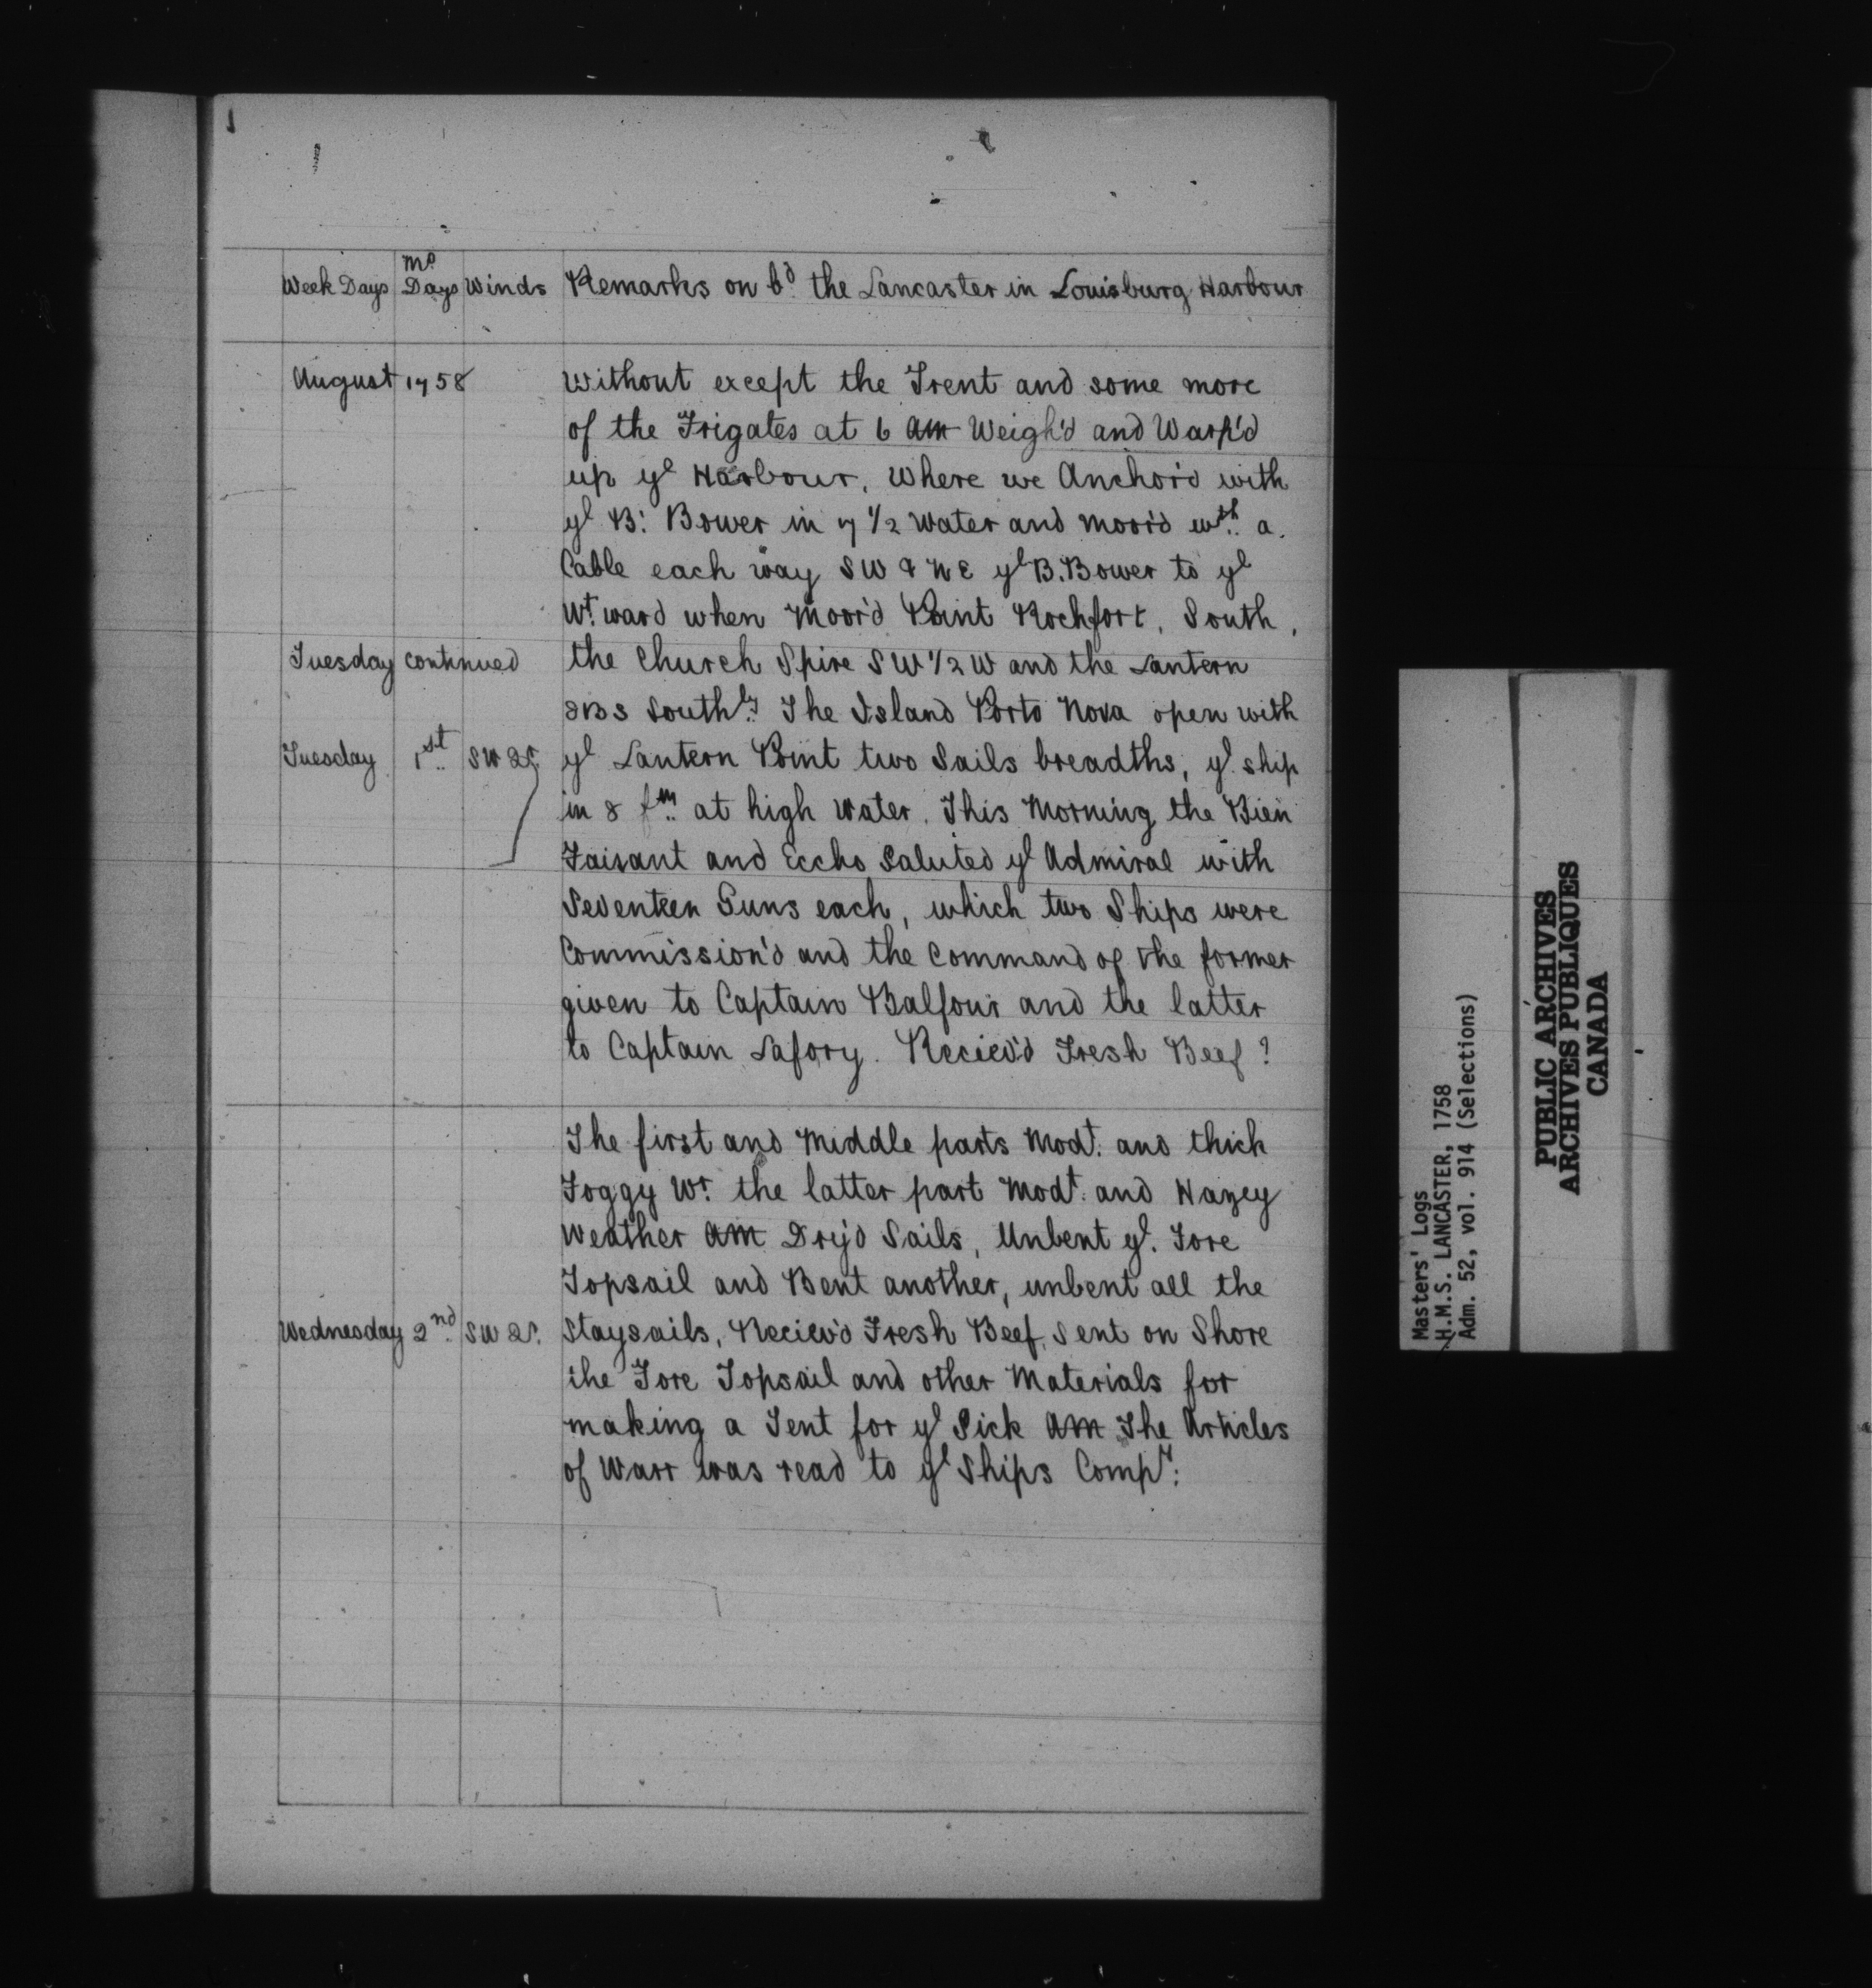 Week Days Mo Days Winds Remarks on bd the Lancaster in Louisburg Harbour
August 1758 Without except the Trent and some more
of the Frigates at 6 am Weigh'd and Warp'd
up ye Harbour, Where we Anchor'd with
ye B: Bower in 7 1/2 Water and moor'd wth a
Cable each way SW & NE ye B. Bower to ye
Wt.ward when Moor'd Point Rochfort, South,
Tuesday continued the Church Spire SW 1/2 W and the Lantern
South.ly The Island Porto Nova open with
Tuesday 1st SW ye Lantern Point two Sails breadths, ye ship
in 8 fm at high Water. This Morning the Bien
Faisant and Eccho Saluted ye Admiral with
Seventeen Guns each, which two Ships were
Commission'd and the Command of the former
given to Captain Balfour and the latter
to Captain Lafory. Reciev'd Fresh Beef?
The first and Middle parts Modt. and thick
Foggy Wr. the latter part Modt. and Hazey
Weather AM Dry'd Sails, Unbent ye. Fore
Topsail and Bent another, unbent all the
Wednesday 2nd SW Staysails, Reciev'd Fresh Beef, Sent on Shore
the Fore Topsail and other Materials for
making a Tent for ye Sick AM The Articles
of Warr was read to ye Ships Compy:
Masters' Logs
H.M.S. LANCASTER, 1758
Adm. 52, vol. 914 (Selections)
PUBLIC ARCHIVES
ARCHIVES PUBLIQUES
CANADA